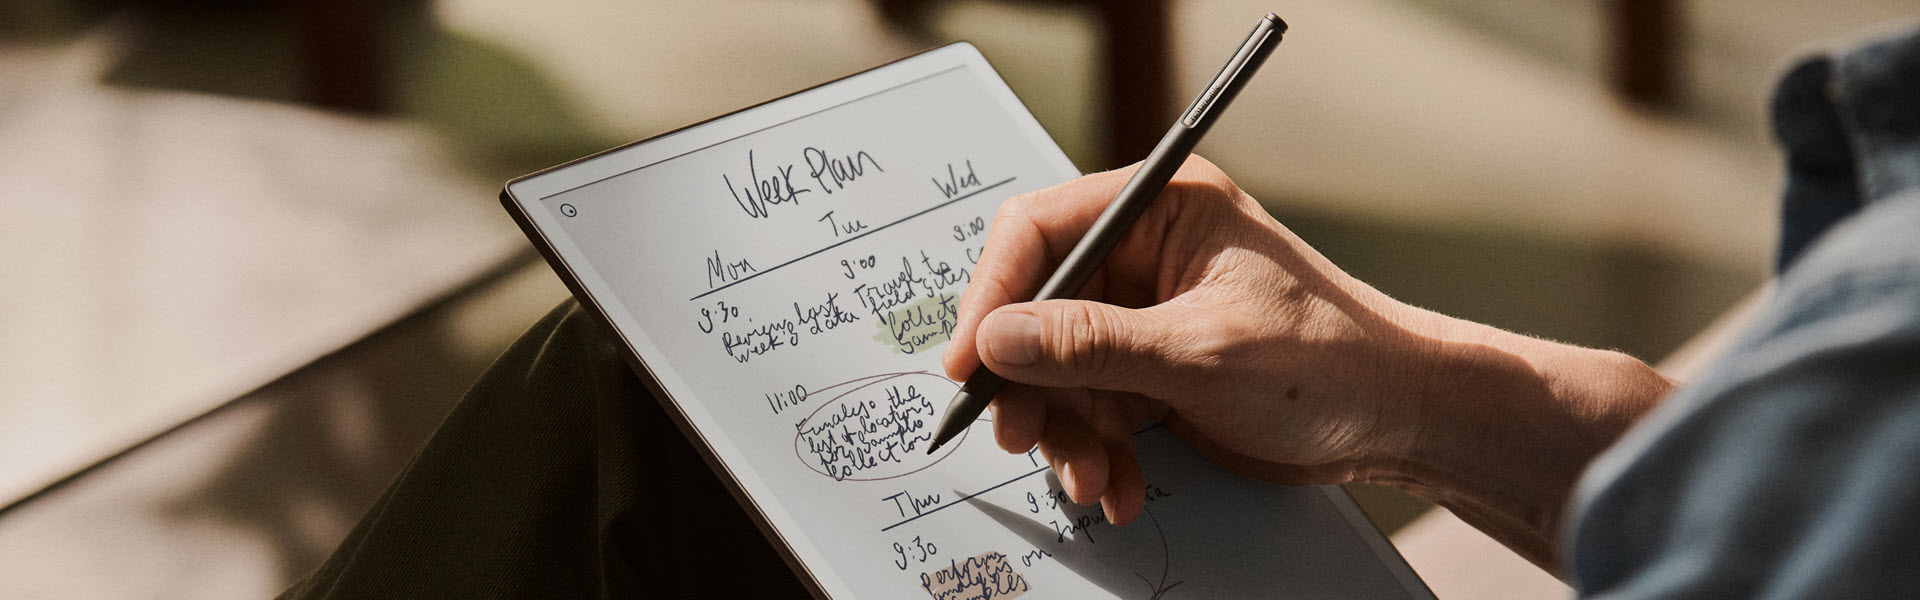 Week Plan
Mon
Tu
Wed
9:30
Review last
week's data
9:00
Travel to
field sites
Collect
samp
9:00
11:00
Finalize the
list of locations
for sample
collection
Thu
9:30
Perform
analysis
on
samples
9:30
Input